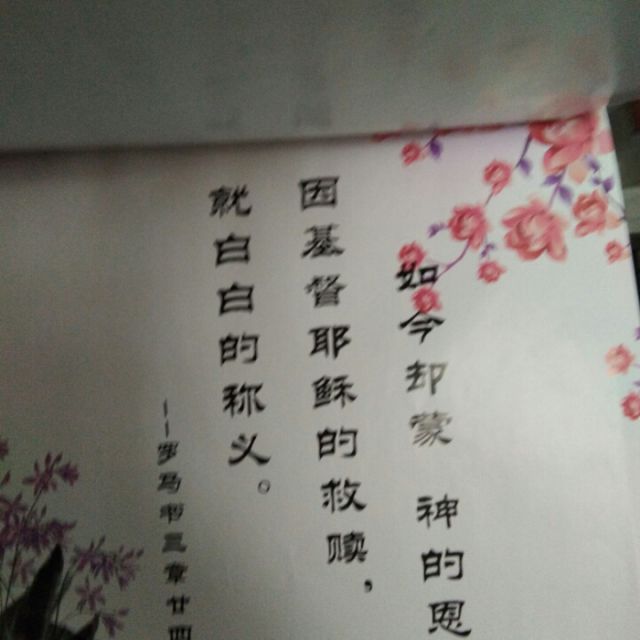 如今却蒙 神的恩
因基督耶稣的救赎，
就白白的称义。
——罗马书三章廿四